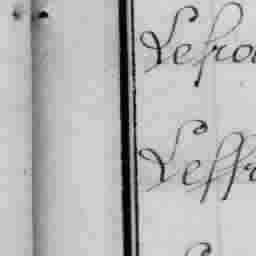 Lefro
Leffr